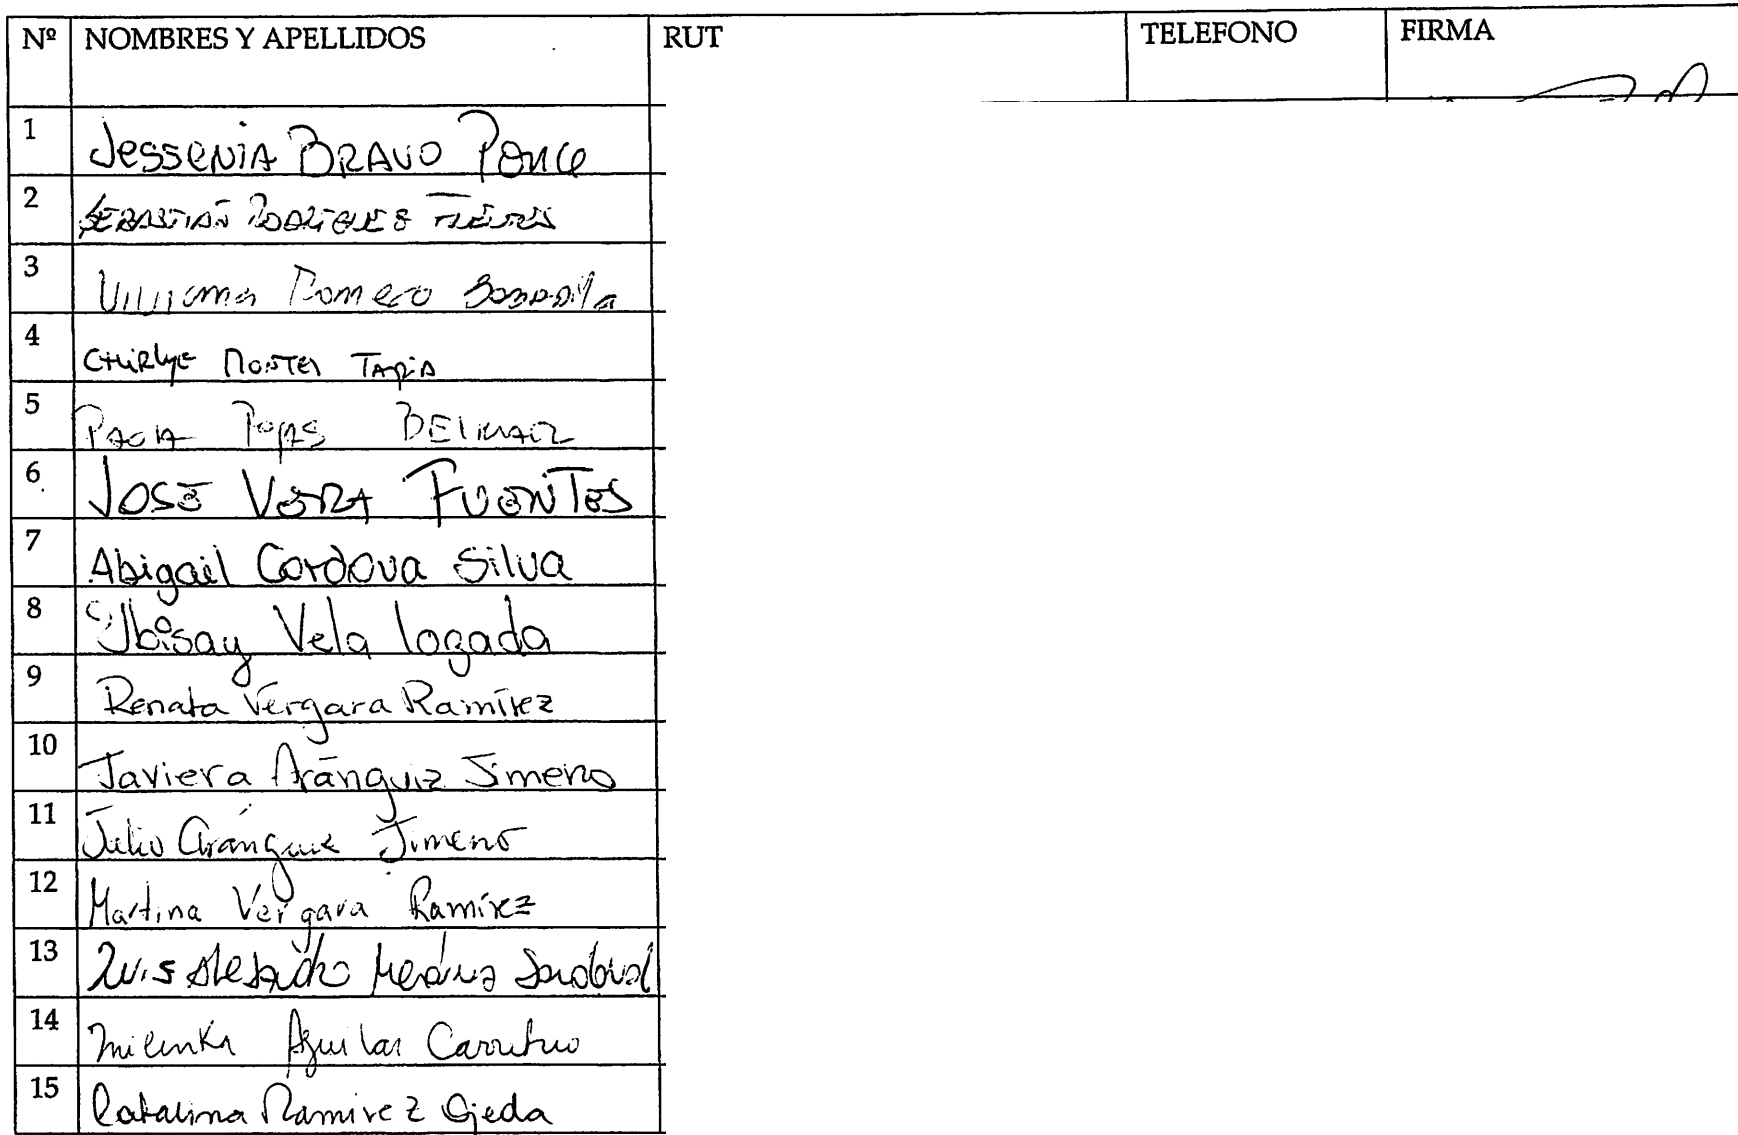 Nº NOMBRES Y APELLIDOS RUT TELEFONO FIRMA
1 Jessenia BRAVO Ponce
2 SEBASTIAN RODRIGUES
3 Romero Bobadilla
4 TAPIA
5 BELMAR
6 JOSE VERA FUENTES
7 Abigail Cordova Silva
8 Ybisay Vela lozada
9 Renata Vergara Ramírez
10 Javiera Aránguiz Jimeno
11 Julio Aránguiz Jimeno
12 Martina Vergara Ramírez
13 Luis Alejandro Medina Sandoval
14 Milenka Aguilar
15 Catalina Ramirez Ojeda